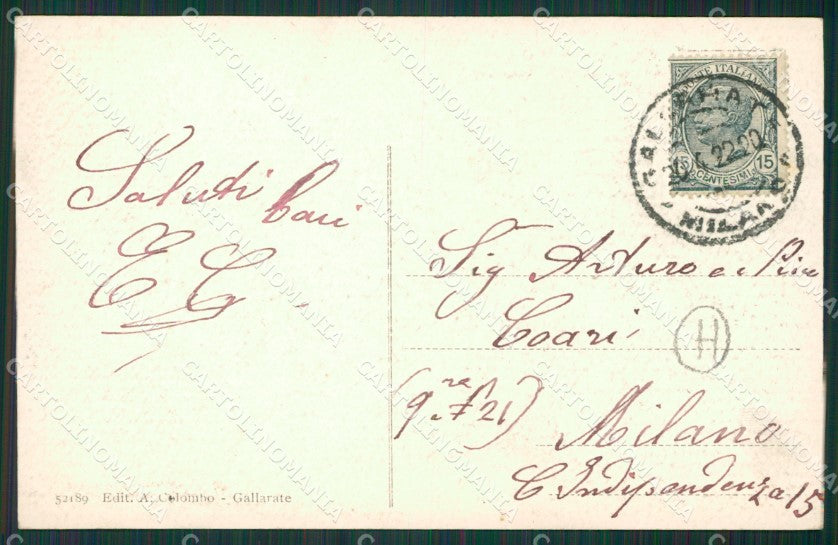 Saluti Cari
E C
52189 Edit. A. Colombo - Gallarate
POSTE ITALIANE
15 15
CENTESIMI
GALLARATE
22.20
MILANO
Sig Arturo e
Coari
H
Milano
C Indipendenza 15
CARTOLINOMANIA